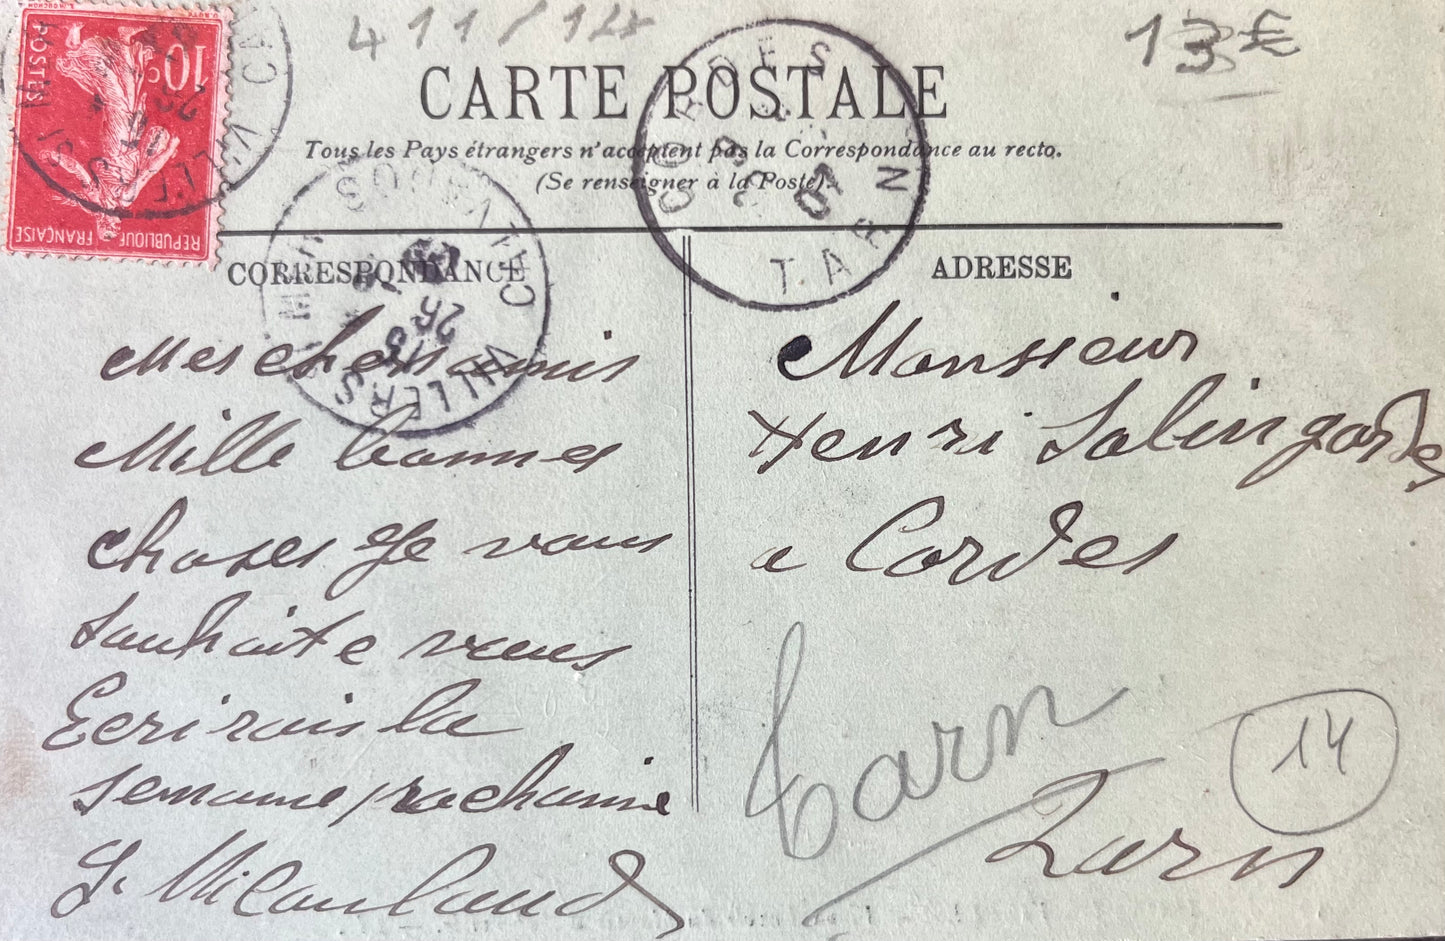 411/14
13€
CARTE POSTALE
Tous les Pays étrangers n'acceptent pas la Correspondance au recto.
(Se renseigner à la Poste).
REPUBLIQUE FRANÇAISE
POSTES
10c
VILLERS
CORDES
TARN
07
VILLERS
26
CORRESPONDANCE
Mes chers amis
Mille bonnes
choses Je vous
souhaite vous
Ecrirais la
semaine prochaine
ADRESSE
Monsieur
Henri
a Cordes
Tarn
Tarn
14